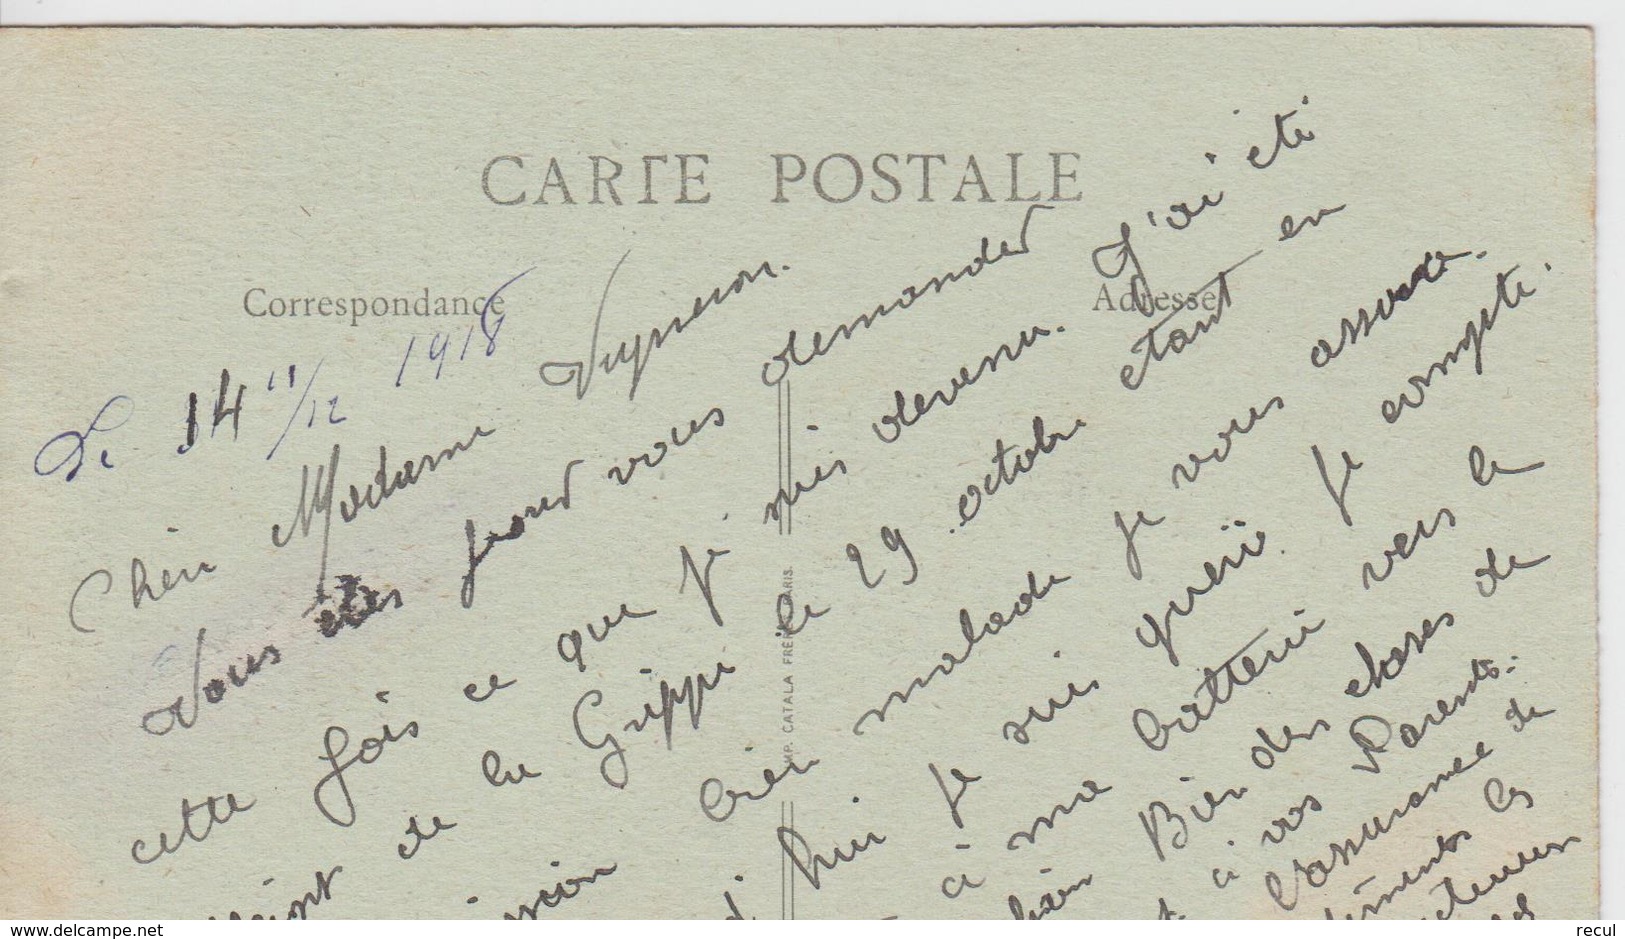 CARTE POSTALE
Correspondance
Adresse
Le 14 11/12 1918
Chère Madame Vugneron.
Vous êtes pour vous demander
cette fois ce que je suis devenu. J'ai été
atteint de la Grippe le 29 octobre étant en
bien malade je vous assure.
d'hui je suis guerii. Je compte
à ma batterie vers le
Bien des choses de
à vos Parents.
l'assurance de
les
IMP. CATALA FRÈRES, PARIS.
www.delcampe.net
recul